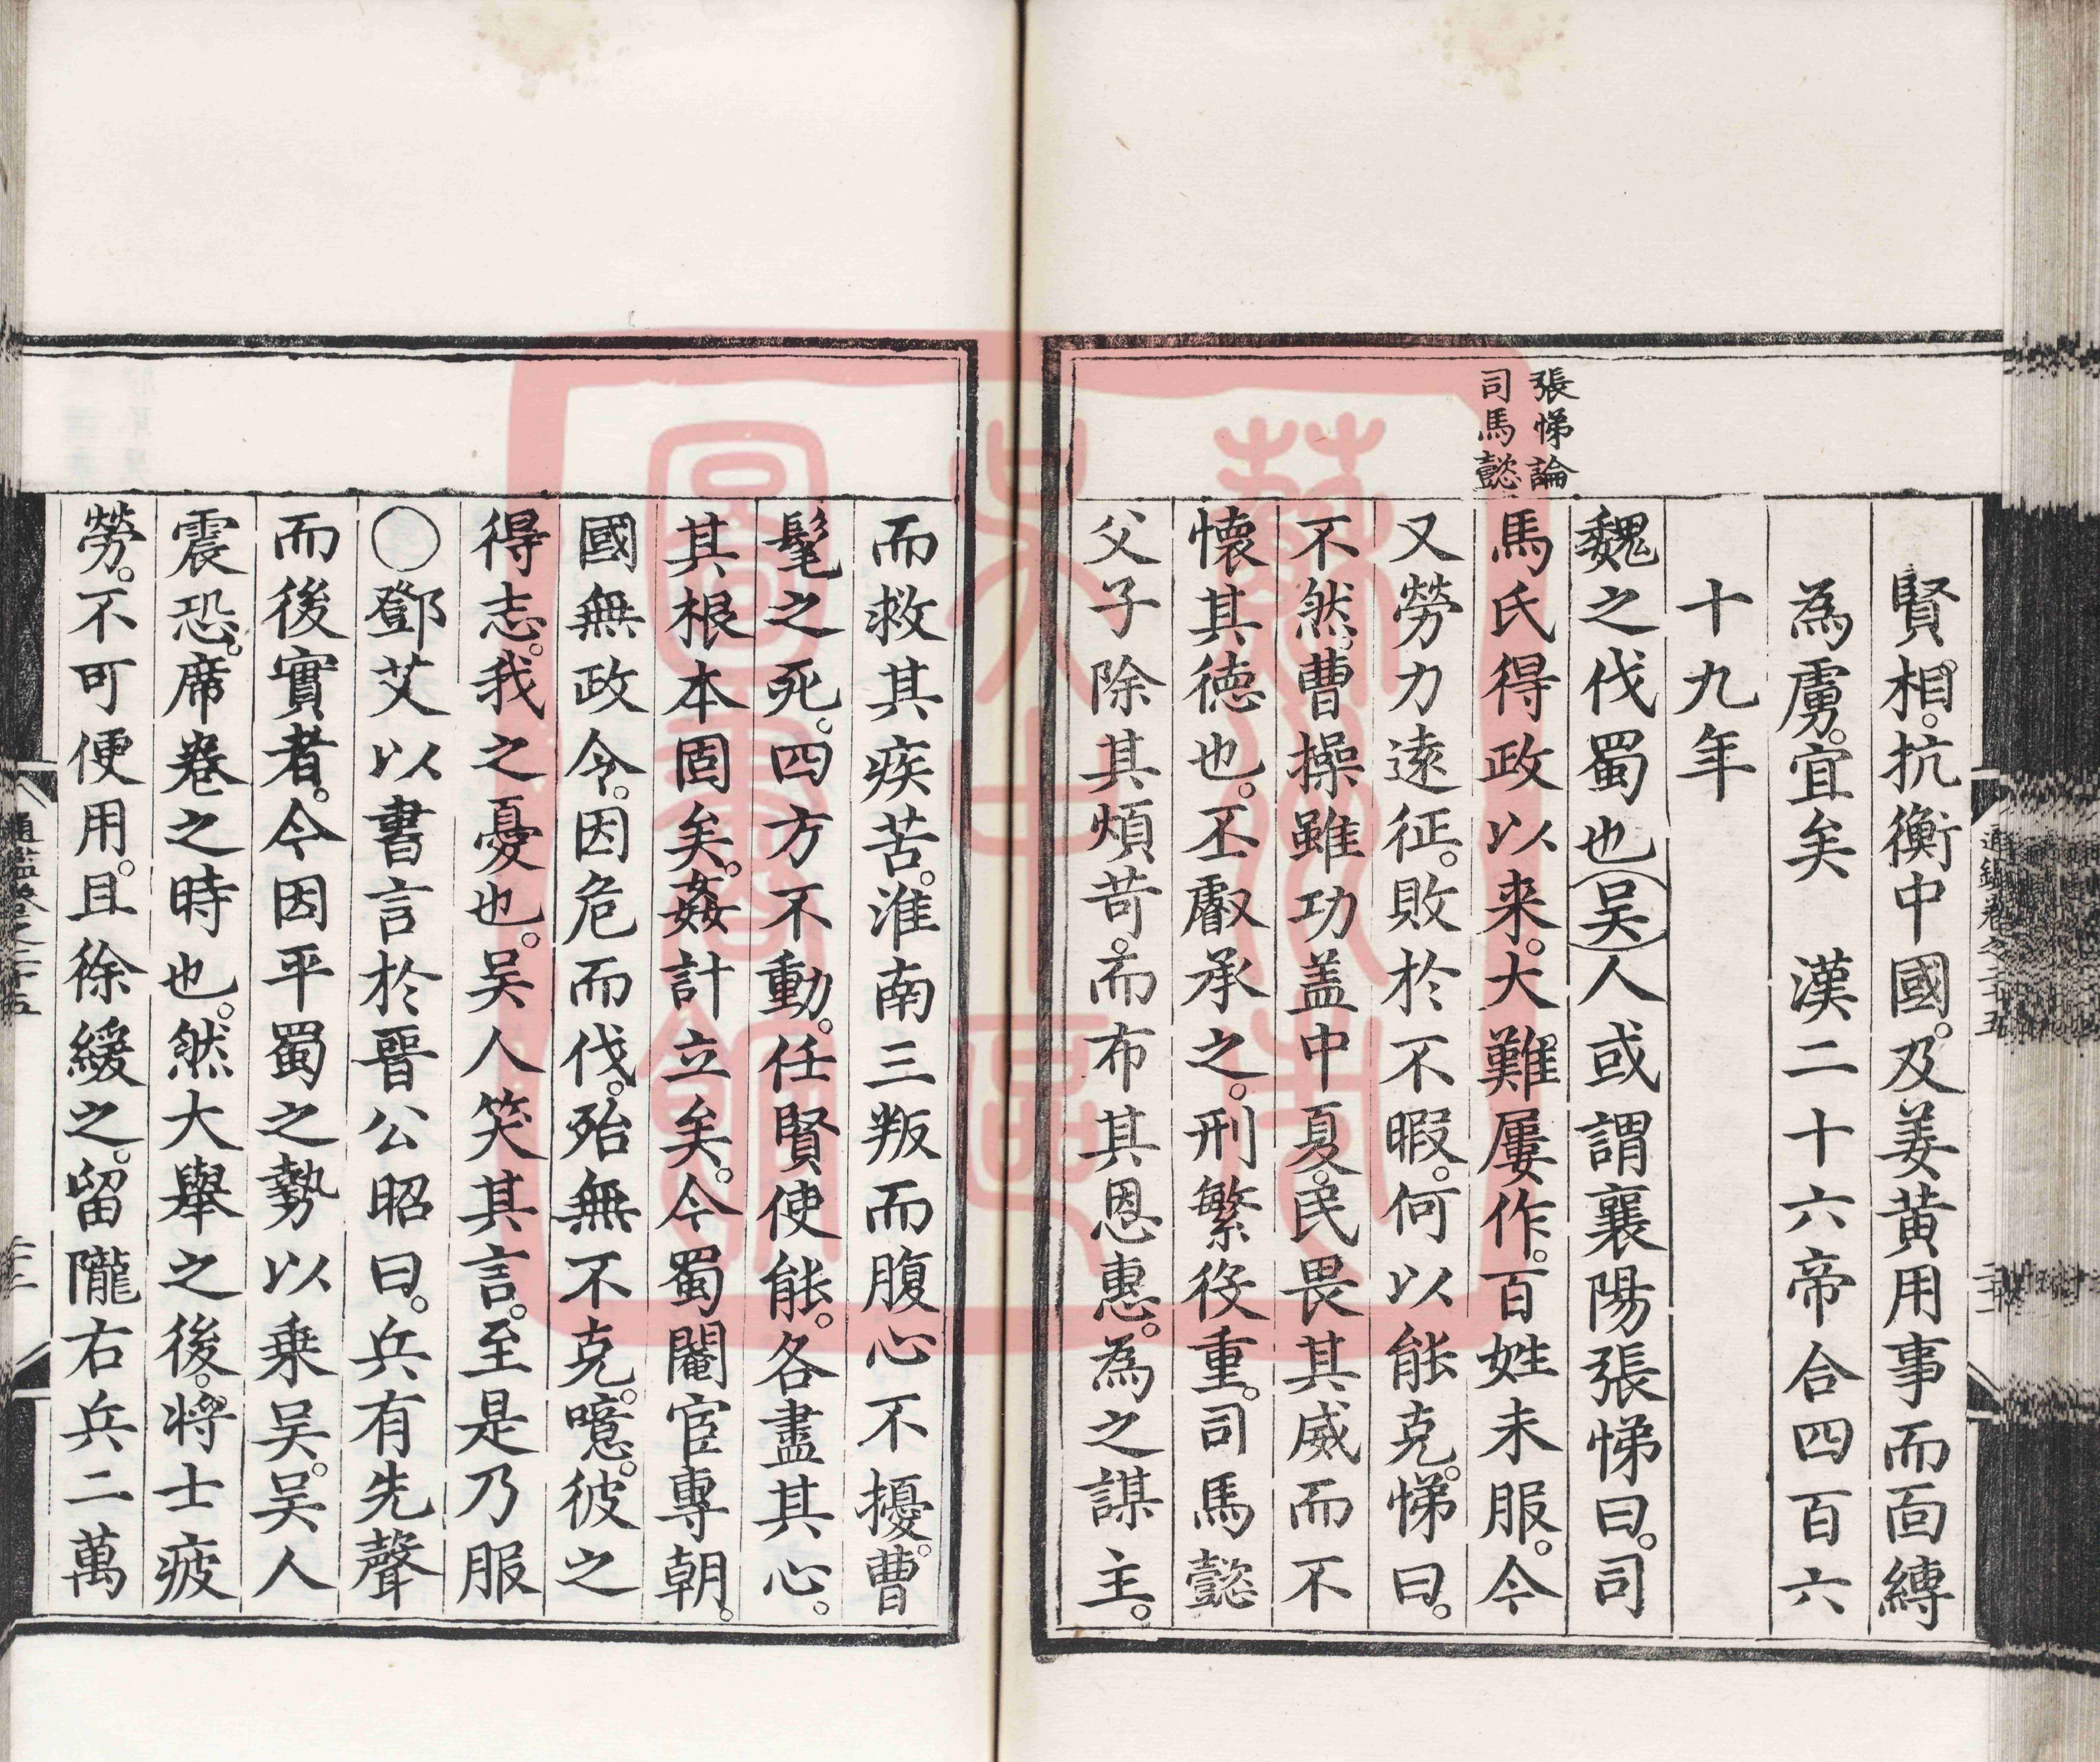 賢相。抗衡中國。及姜黄用事而面縛
為虜。宜矣　漢二十六帝合四百六
十九年
張悌論
司馬懿
魏之伐蜀也吴人或謂襄陽張悌曰。司
馬氏得政以来。大難屢作。百姓未服。今
又勞力遠征。敗於不暇。何以能克。悌曰。
不然。曹操雖功盖中夏。民畏其威而不
懷其徳也。丕叡承之。刑繁役重。司馬懿
父子除其煩苛。而布其恩惠。為之謀主。
而救其疾苦。淮南三叛而腹心不擾。曹
髦之死。四方不動。任賢使能。各盡其心。
其根本固矣。姦計立矣。今蜀閹宦專朝。
國無政令。因危而伐。殆無不克。噫。彼之
得志。我之憂也。吴人笑其言。至是乃服
○鄧艾以書言於晉公昭曰。兵有先聲
而後實者。今因平蜀之勢以乗吴。吴人
震恐。席卷之時也。然大舉之後。将士疲
勞。不可便用。且徐緩之。留隴右兵二萬
通鑑卷之二十五
蘇州市
吴中區
圖書館